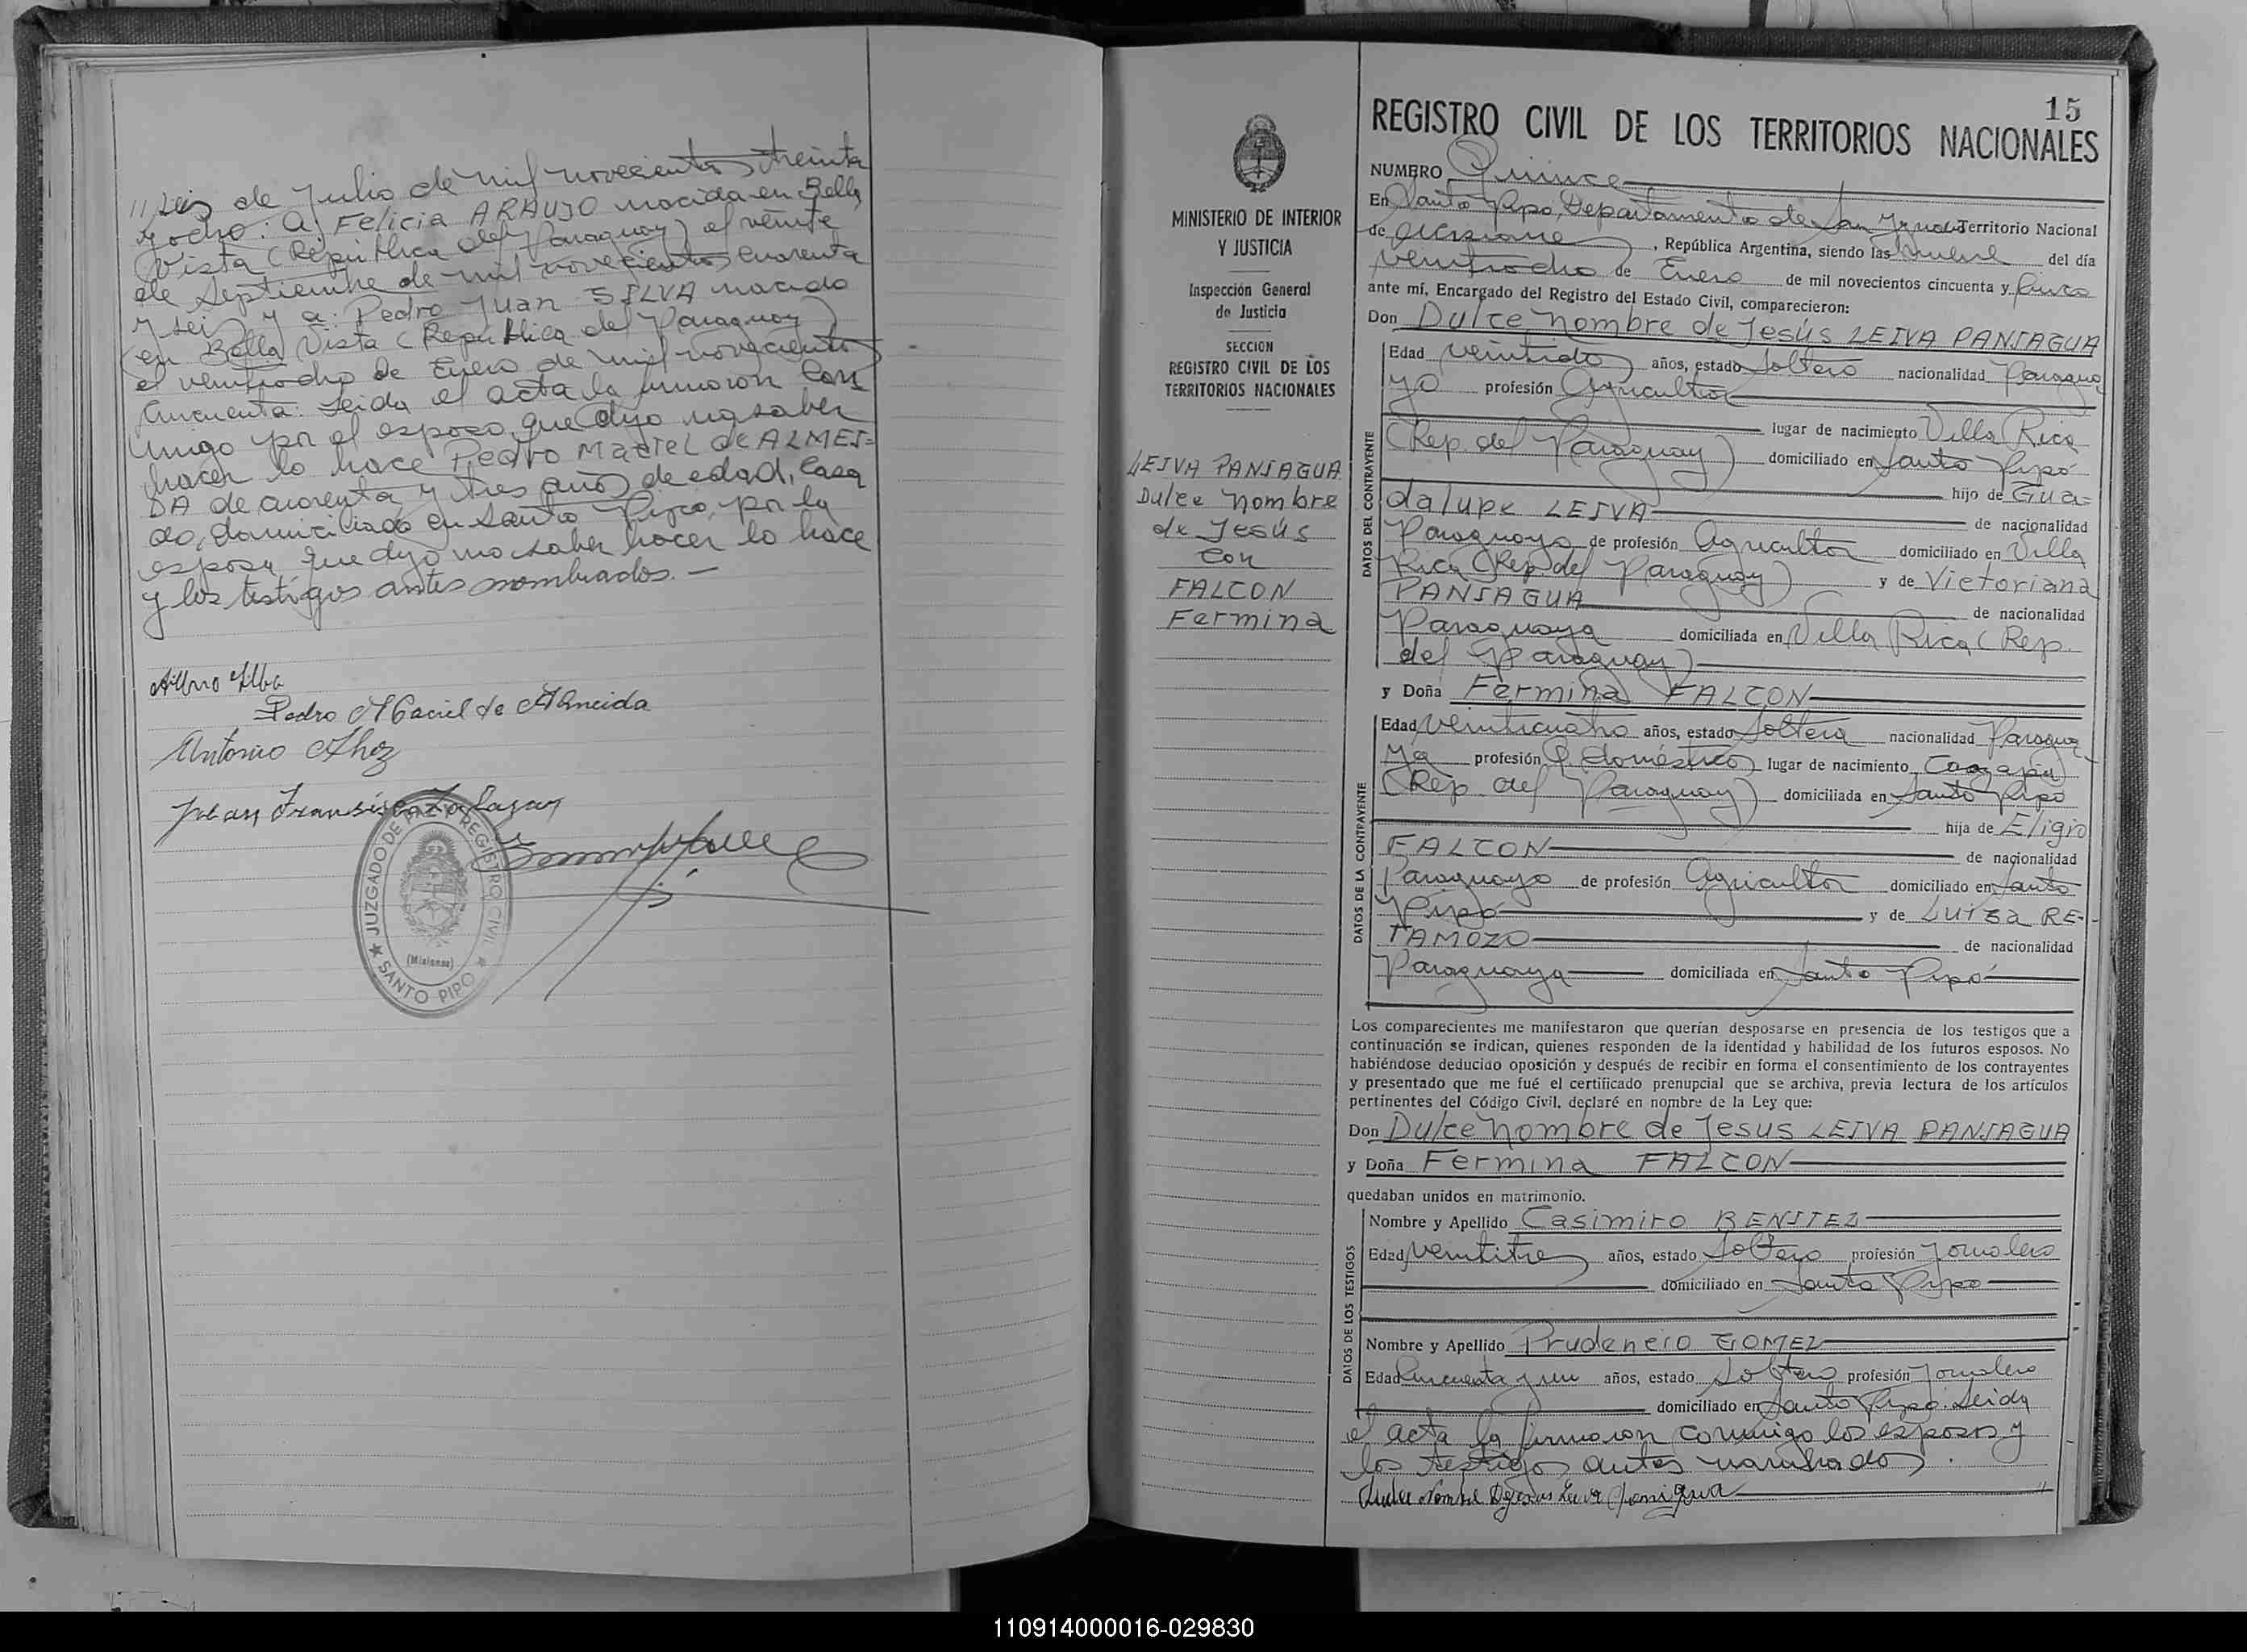 // seis de Julio de mil novecientos treinta
y ocho: a Felicia ARAUJO nacida en Bella
Vista (República del Paraguay) el veinte
de Septiembre de mil novecientos cuarenta
y seis y a: Pedro Juan SILVA nacido
en Bella Vista (República del Paraguay)
el veintiocho de Enero de mil novecientos
cincuenta. Leida el acta la firmaron con
migo por el esposo que dijo no saber
hacer lo hace Pedro Maciel de ALMEI=
DA de cuarenta y tres años de edad, casa
do, domiciliado en Santo Pipó, por la
esposa que dijo no saber hacer lo hace
y los testigos antes nombrados.—
Pedro Maciel de Almeida
Antonio
Juan Francisco
JUZGADO DE PAZ Y REGISTRO CIVIL
(Misiones)
SANTO PIPO
MINISTERIO DE INTERIOR
Y JUSTICIA
Inspección General
de Justicia
SECCION
REGISTRO CIVIL DE LOS
TERRITORIOS NACIONALES
LEIVA PANIAGUA
Dulce Nombre
de Jesús
con
FALCON
Fermina
15
REGISTRO CIVIL DE LOS TERRITORIOS NACIONALES
NUMERO Quince
En Santo Pipó, Departamento de San Ignacio Territorio Nacional
de Misiones, República Argentina, siendo las nueve del día
veintiocho de Enero de mil novecientos cincuenta y cinco
ante mí, Encargado del Registro del Estado Civil, comparecieron:
Don Dulce Nombre de Jesús LEIVA PANIAGUA
DATOS DEL CONTRAYENTE
Edad veintidos años, estado soltero nacionalidad Paragua
yo profesión Agricultor
lugar de nacimiento Villa Rica
(Rep. del Paraguay) domiciliado en Santo Pipó
hijo de Gua=
dalupe LEIVA
de nacionalidad
Paraguayo de profesión Agricultor domiciliado en Villa
Rica (Rep. del Paraguay) y de Victoriana
PANIAGUA
de nacionalidad
Paraguaya domiciliada en Villa Rica (Rep.
del Paraguay)
y Doña Fermina FALCON
DATOS DE LA CONTRAYENTE
Edad veinticuatro años, estado soltera nacionalidad Paragua
ya profesión Q. domésticos lugar de nacimiento Caazapá
(Rep. del Paraguay) domiciliada en Santo Pipó
hija de Eligio
FALCON
de nacionalidad
Paraguayo de profesión Agricultor domiciliado en Santo
Pipó y de Luisa RE-
TAMOZO
de nacionalidad
Paraguaya domiciliada en Santo Pipó
Los comparecientes me manifestaron que querían desposarse en presencia de los testigos que a
continuación se indican, quienes responden de la identidad y habilidad de los futuros esposos. No
habiéndose deducido oposición y después de recibir en forma el consentimiento de los contrayentes
y presentado que me fué el certificado prenupcial que se archiva, previa lectura de los artículos
pertinentes del Código Civil, declaré en nombre de la Ley que:
Don Dulce Nombre de Jesus LEIVA PANIAGUA
y Doña Fermina FALCON
quedaban unidos en matrimonio.
DATOS DE LOS TESTIGOS
Nombre y Apellido Casimiro BENITEZ
Edad veintitres años, estado soltero profesión Jornalero
domiciliado en Santo Pipó
Nombre y Apellido Prudencio GOMEZ
Edad cincuenta y un años, estado soltero profesión Jornalero
domiciliado en Santo Pipó. Leida
el acta la firmaron conmigo los esposos y
los testigos antes nombrados.
Dulce Nombre De Jesus Leiva Paniagua //
110914000016-029830